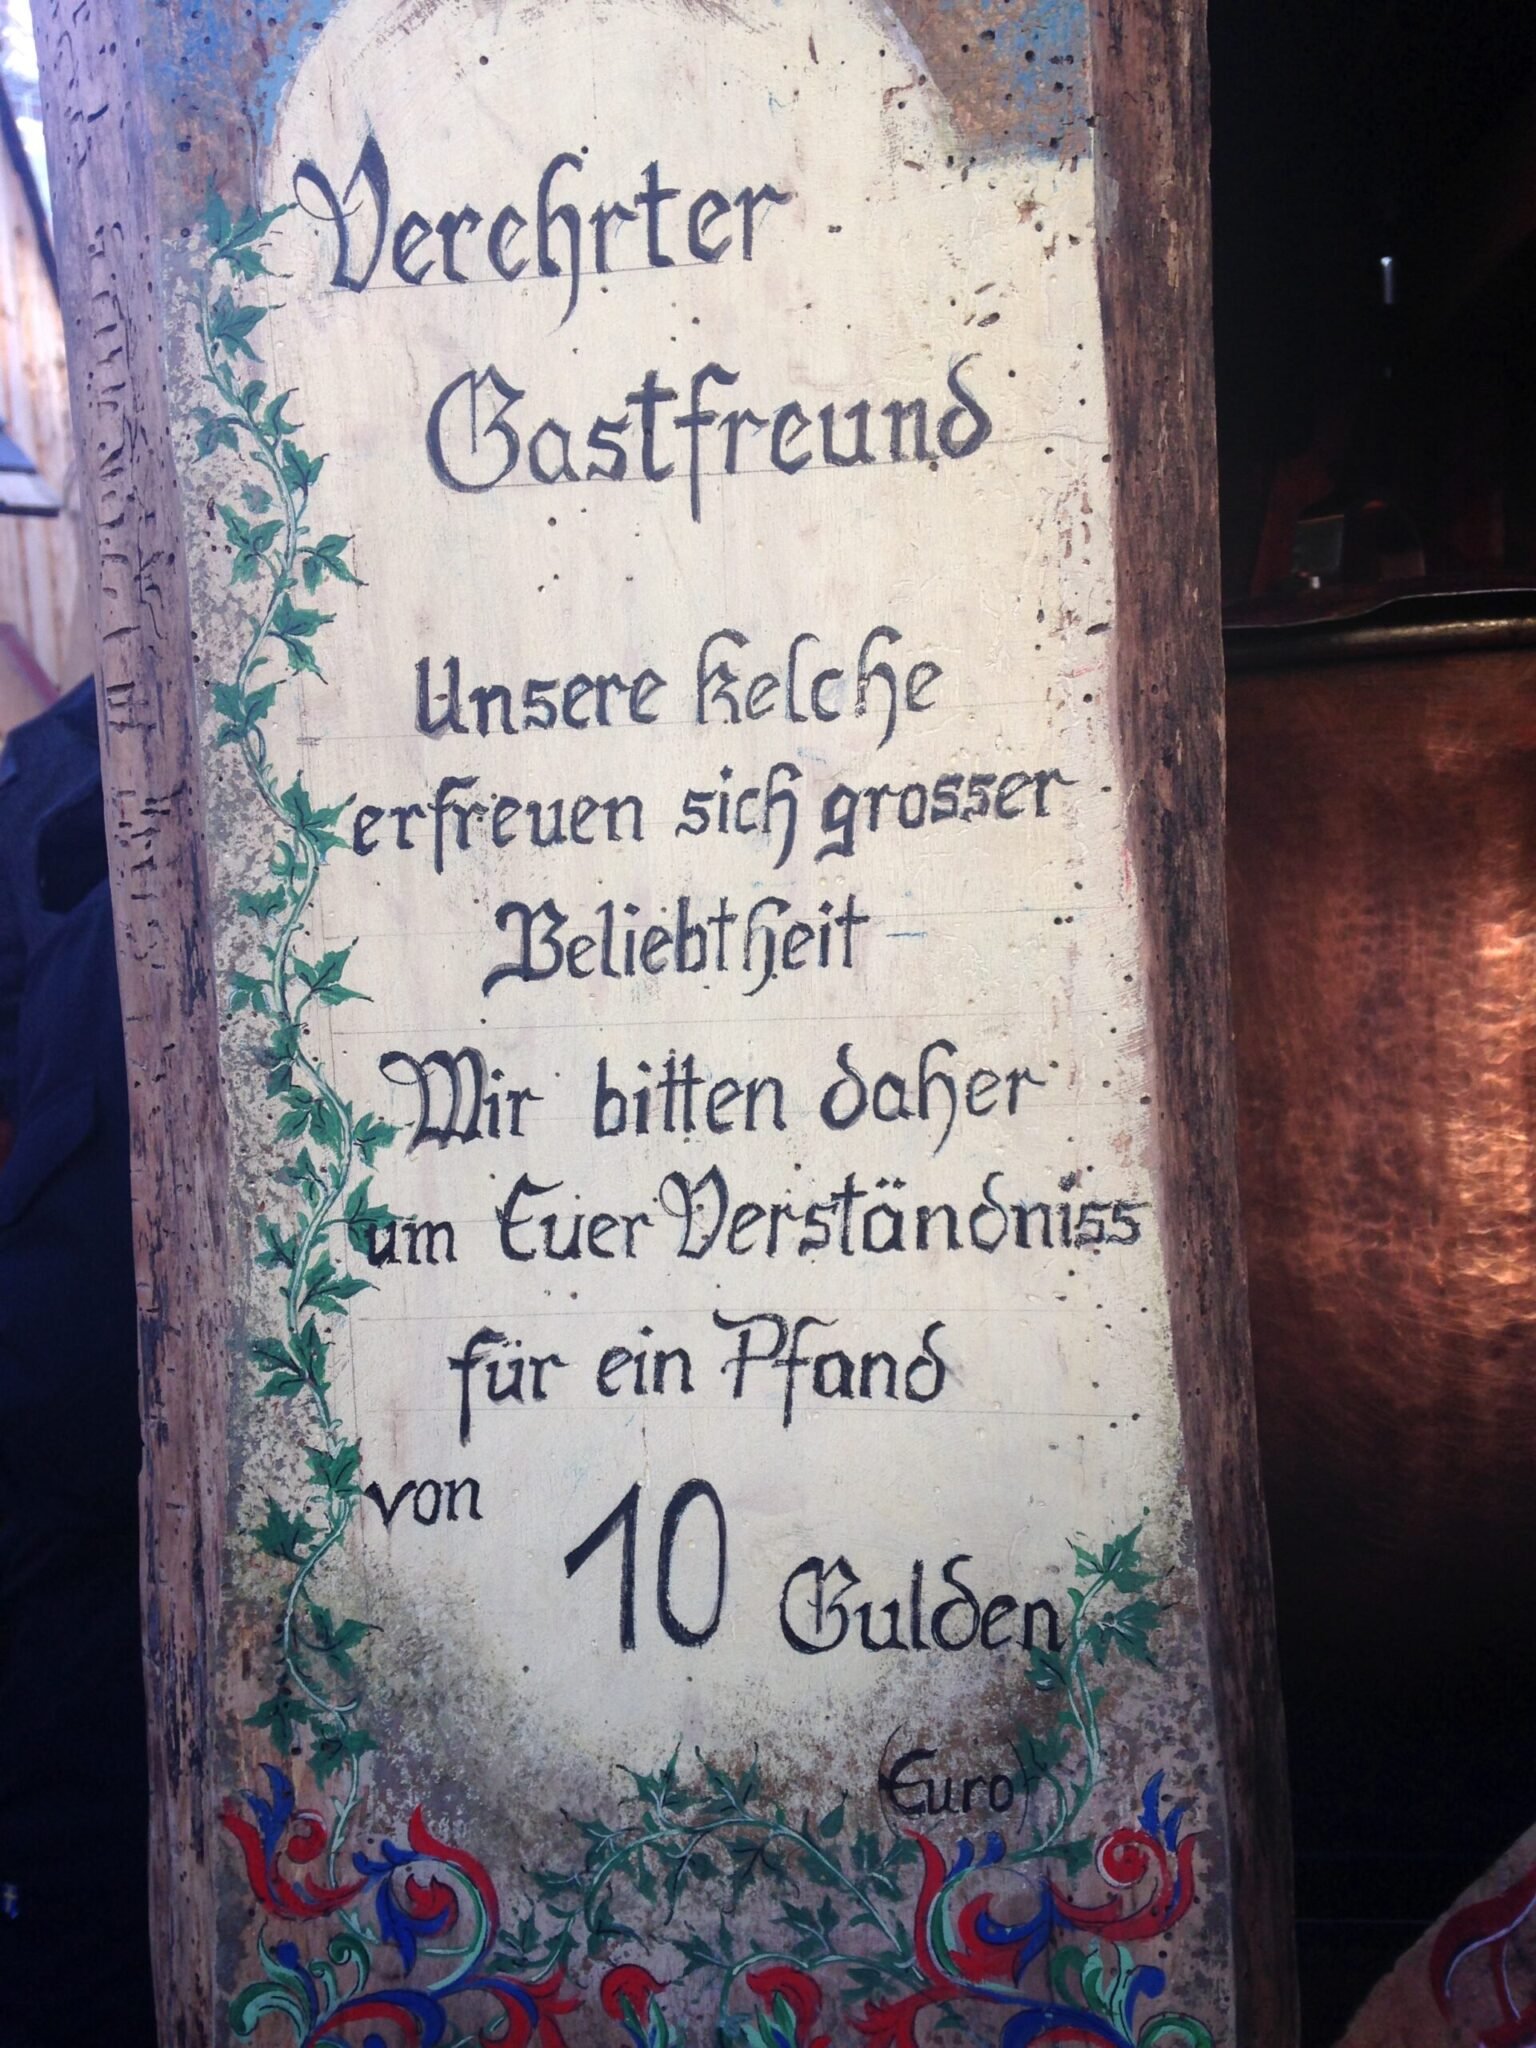 Verehrter
Gastfreund
Unsere kelche
erfreuen sich grosser
Beliebtheit
Wir bitten daher
um Euer Verständniss
für ein Pfand
von 10 Gulden
(Euro)